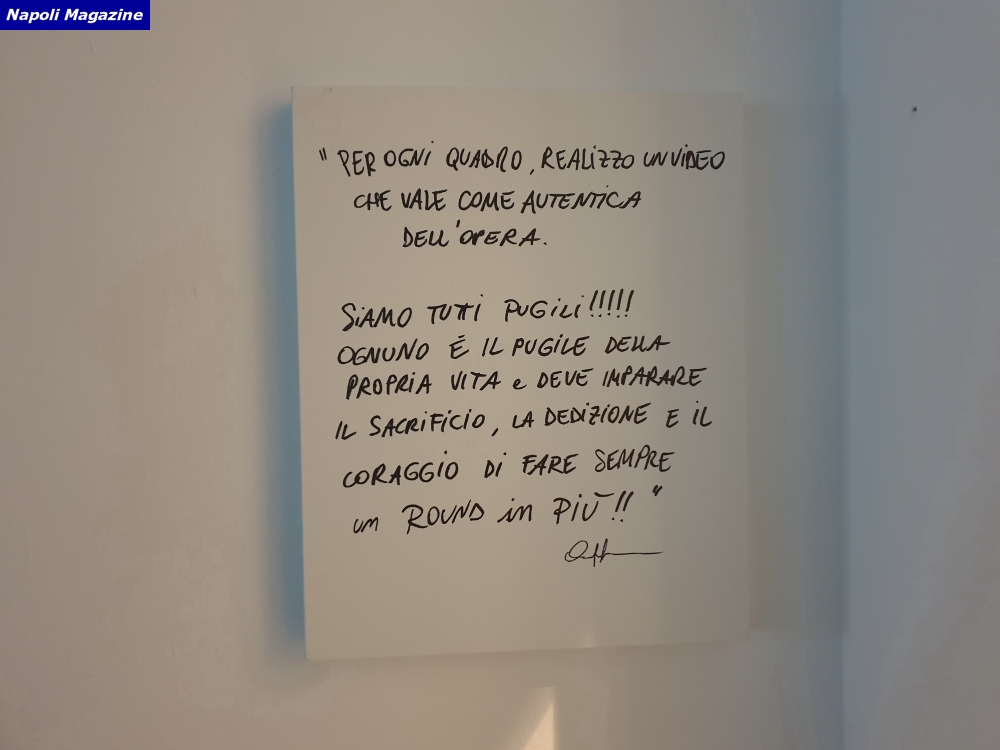 Napoli Magazine
" PER OGNI QUADRO, REALIZZO UN VIDEO
CHE VALE COME AUTENTICA
DELL'OPERA.
SIAMO TUTTI PUGILI!!!!!
OGNUNO É IL PUGILE DELLA
PROPRIA VITA e DEVE IMPARARE
IL SACRIFICIO, LA DEDIZIONE E IL
CORAGGIO DI FARE SEMPRE
UM ROUND in PIÙ!! "